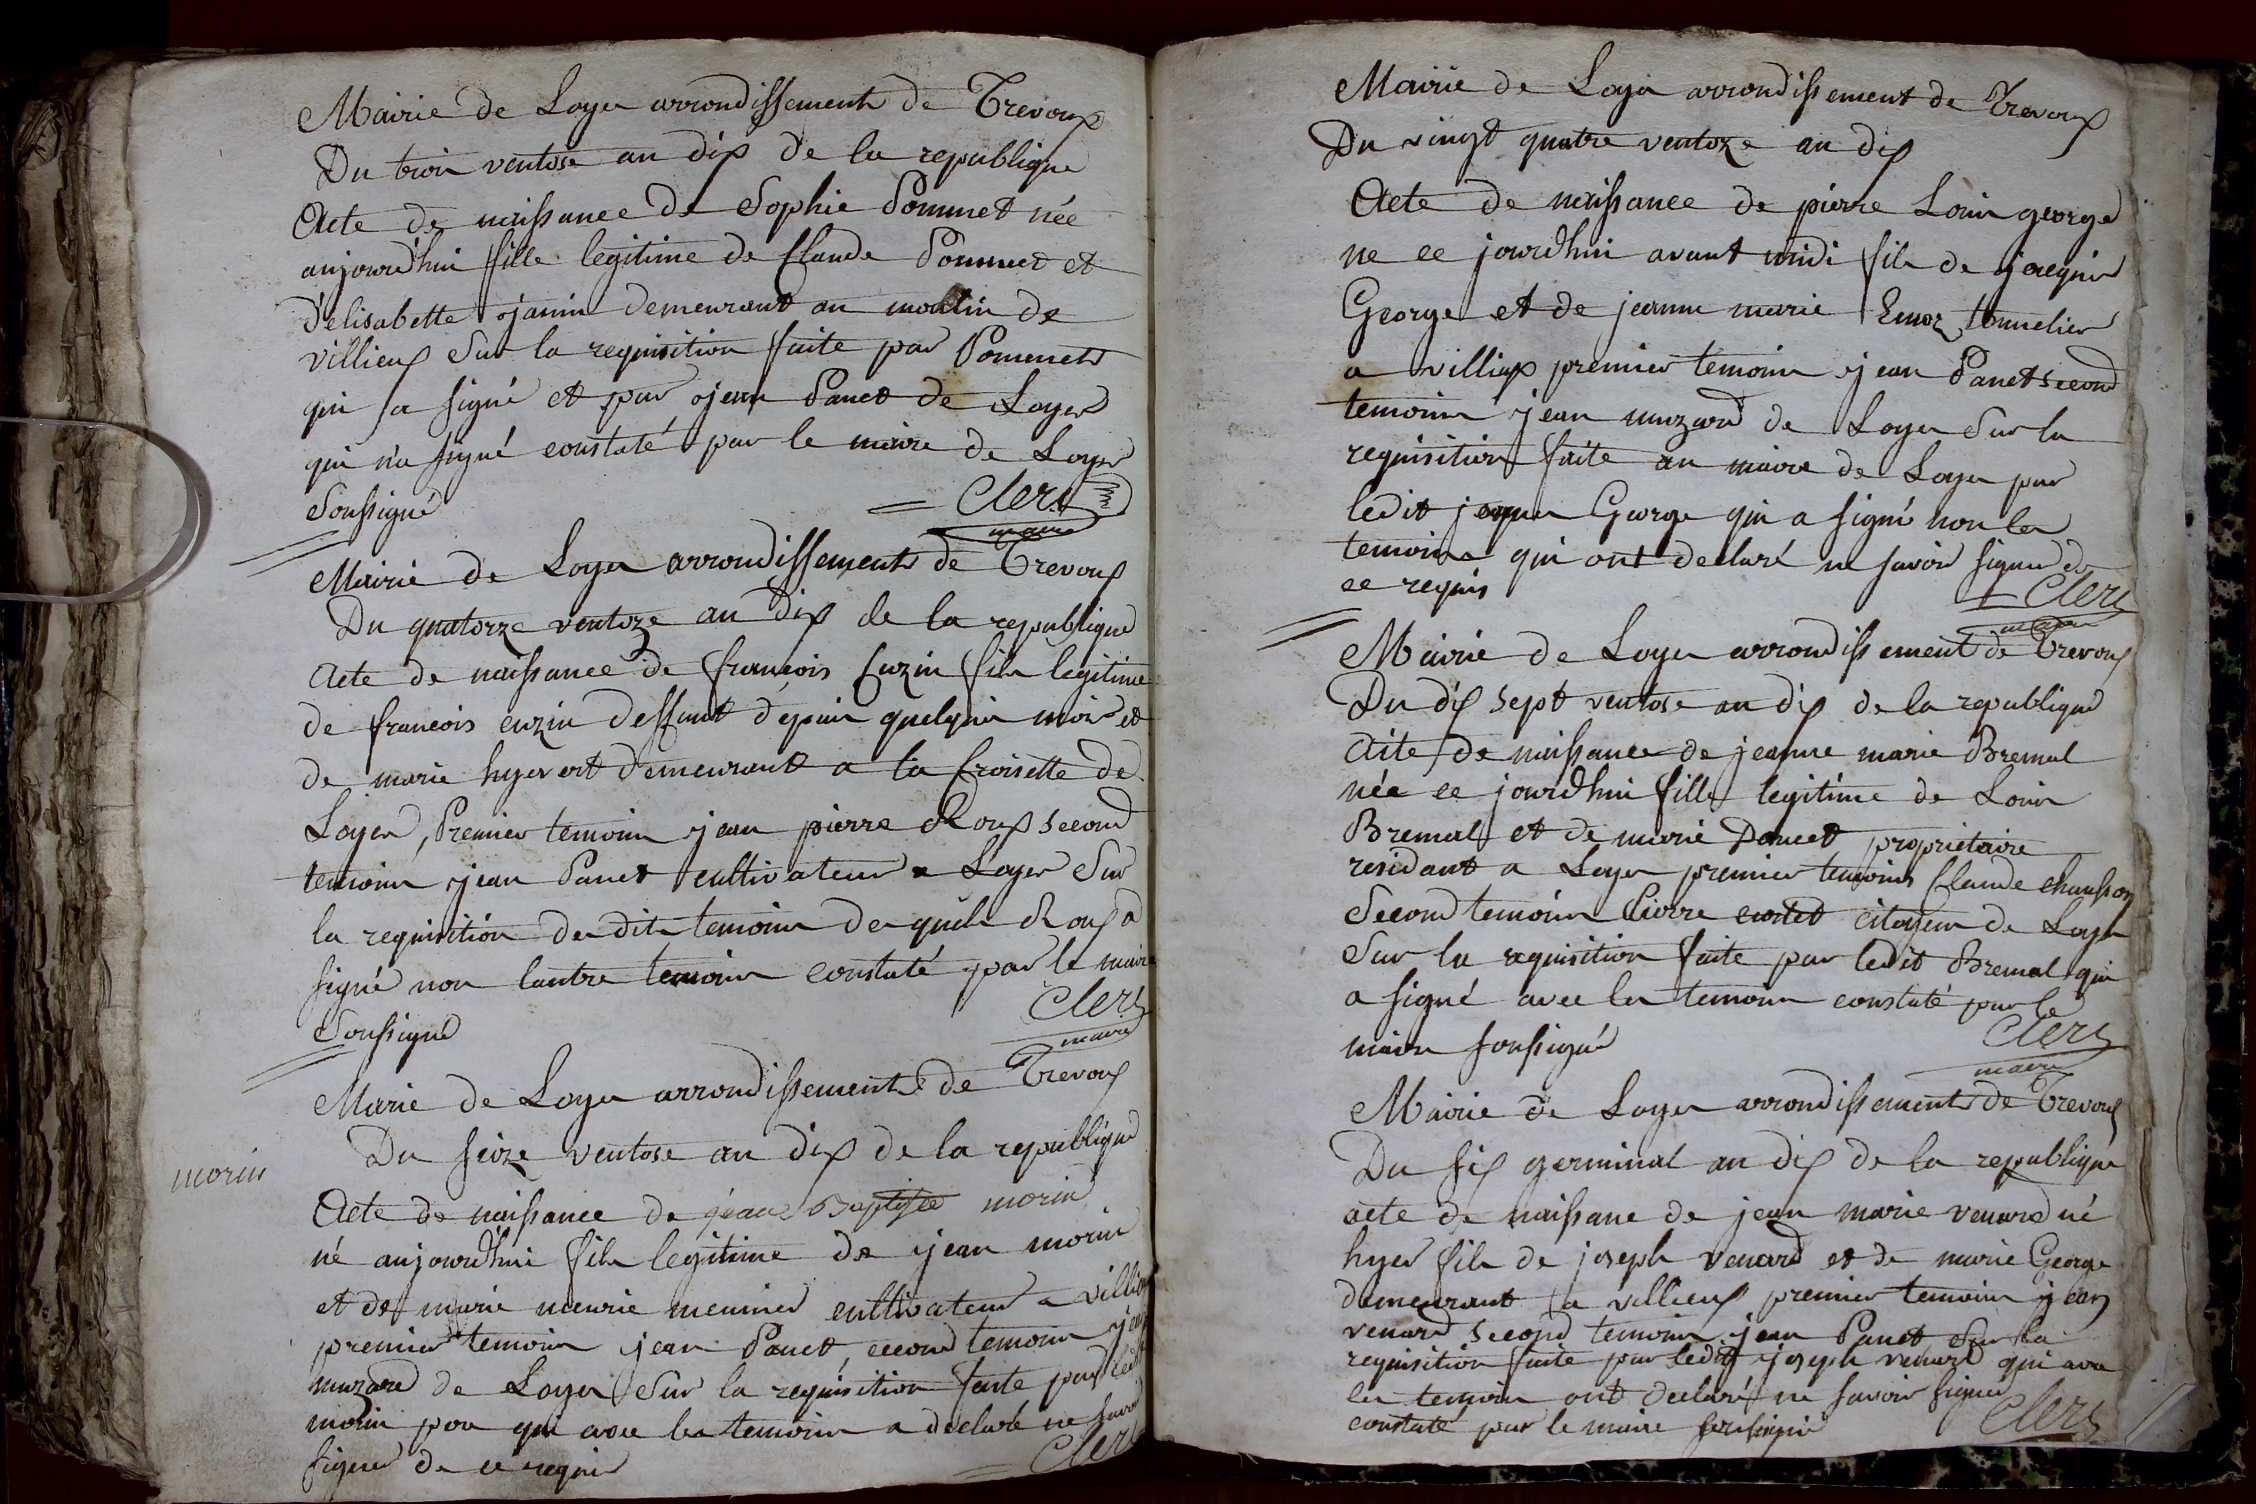 Mairie de Loyes arrondissement de Trevoux
Du trois ventose an dix de la republique
Acte de naissance de Sophie Pommet née
aujourd'hui fille legitime de Claude Pommet et
d'elisabette janin demeurant au moulin de
villieux Sur la requisition faite par Pommet
qui a signé et par jean Panet de Loyes
qui n'a signé constaté par le maire de Loyes
Soussigné
Clerc
maire
Mairie de Loyes arrondissement de Trevoux
Du quatorze ventoze an dix de la republique
Acte de naissance de françois Cuzin fils legitime
de francois cuzin deffunt depuis quelques mois et
de marie hyvert demeurant a la Croisette de
Loyes, Premier temoin jean pierre Roux second
temoins jean Panet cultivateurs a Loyes Sur
la requisition des dits temoins des quels Roux a
signé non lautre temoin constaté par le maire
Soussigné
Clerc
maire
Marie de Loyes arrondissement de Trevoux
Du seize ventose an dix de la republique
morin
Acte de naissance de jean Baptiste morin
né aujourd'hui fils legitime de jean morin
et de marie meunier cultivateur a villieux
premier temoin jean Panet, second temoin jean
muzard de Loyes Sur la requisition faite par ledit
morin qui avec les temoins a declaré ne savoir
signer de ce requis
Clerc
Mairie de Loyes arrondissement de Trevoux
Du vingt quatre ventoze an dix
Acte de naissance de pierre Louis george
ne ce jourdhui avant midi fils de jacques
George et de jeanne marie tonnelier
a villieux premier temoin jean Panet second
temoins jean muzard de Loyes Sur la
requisition faite au maire de Loyes par
ledit jaques George qui a signé non les
temoins qui ont declaré ne savoir signer de
ce requis
Clerc
maire
Mairie de Loyes arrondissement de Trevoux
Du dix sept ventose an dix de la republique
Acte de naissance de jeanne marie Bremal
née ce jourdhui fille legitime de Louis
Bremal et de marie propriétaire
residant a Loyes premier temoins Claude chausson
Second temoins Pierre citoyens de Loyes
Sur la requisition faite par ledit Bremal qui
a signé avec les temoins constaté par le
maire soussigné
Clerc
maire
Mairie de Loyes arrondissement de Trevoux
Du six germinal an dix de la republique
acte de naissane de jean marie venard né
hyer fils de joseph venard et de marie George
demeurant a villieux premier temoin jean
venard second temoins jean Panet Sur la
requisition faite par ledit joseph venard qui avec
les temoins ont declaré ne savoir signer
constaté par le maire soussigné
Clerc